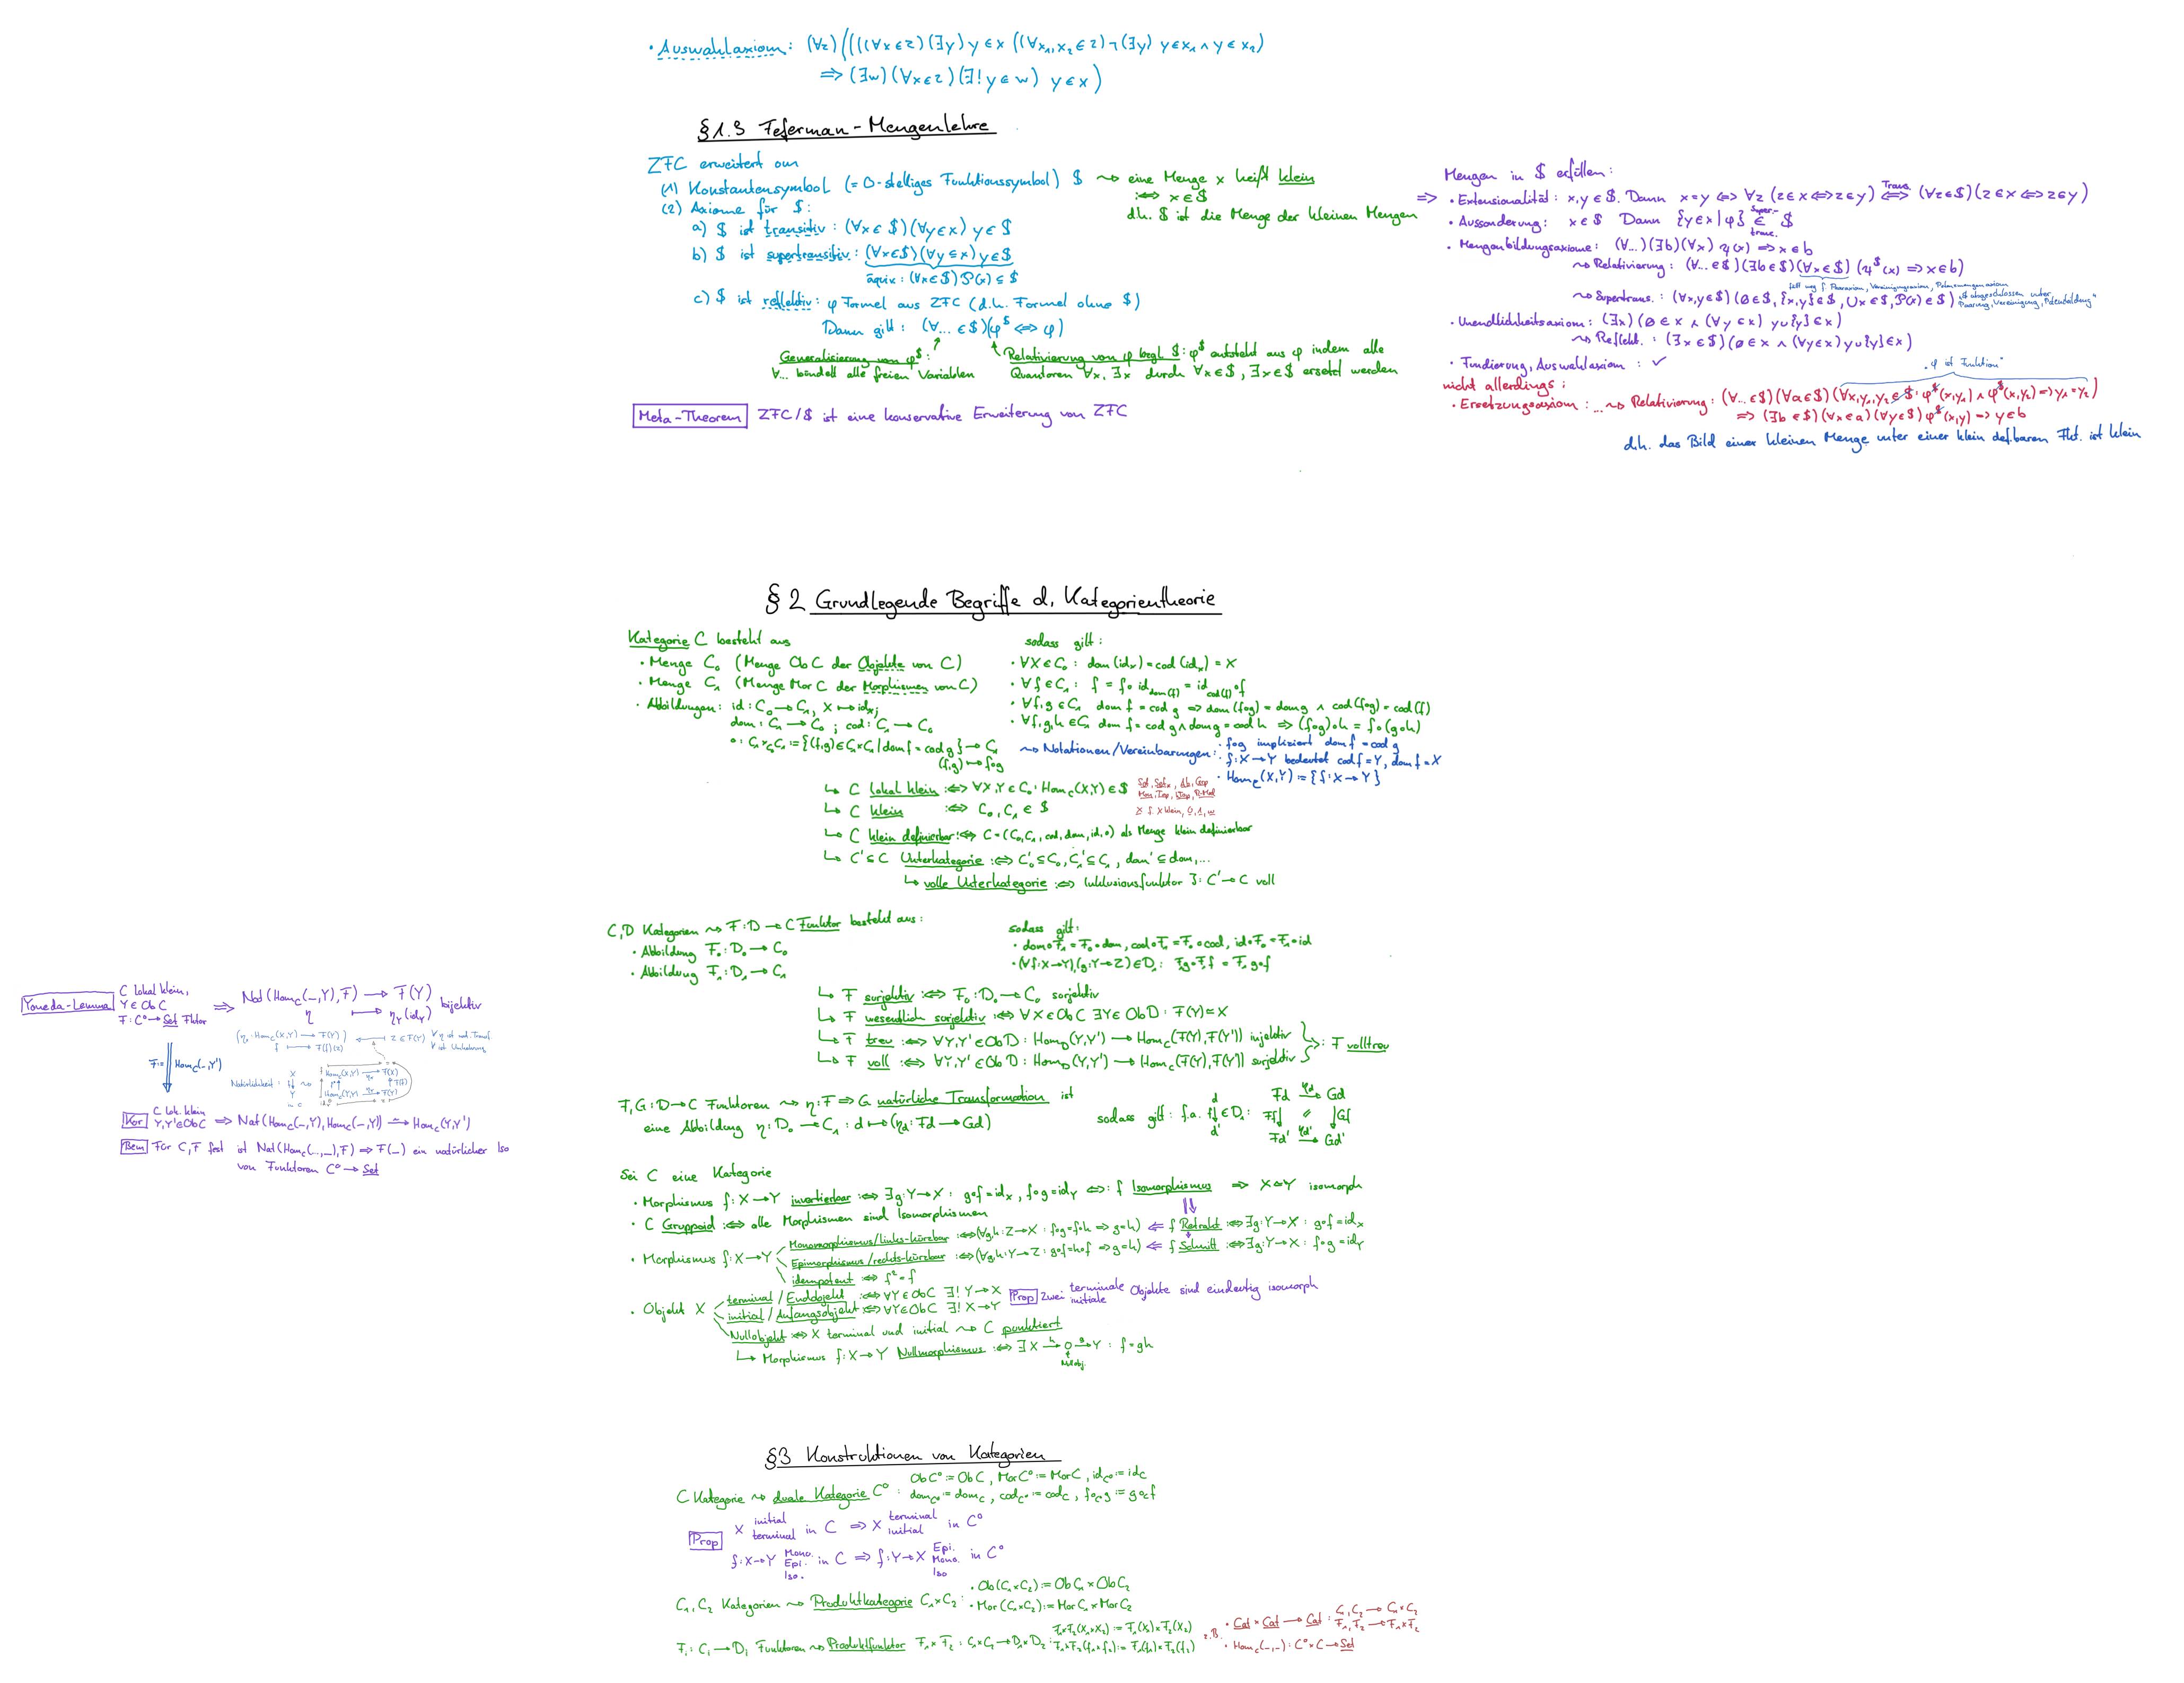 • Auswahlaxiom: (∀z) ((((∀x∈z)(∃y) y∈x ((∀x₁,x₂∈z) ¬(∃y) y∈x₁ ∧ y∈x₂)
⟹ (∃w)(∀x∈z)(∃!y∈w) y∈x)
§1.3 Feferman-Mengenlehre
ZFC erweitert um
(1) Konstantensymbol (= 0-stelliges Funktionssymbol) $ ⇝ eine Menge x heißt klein
:⟺ x∈$
d.h. $ ist die Menge der kleinen Mengen
(2) Axiome für $:
a) $ ist transitiv: (∀x∈$)(∀y∈x) y∈$
b) $ ist supertransitiv: (∀x∈$)(∀y⊆x) y∈$
äquiv: (∀x∈$) P(x)⊆$
c) $ ist reflektiv: φ Formel aus ZFC (d.h. Formel ohne $)
Dann gilt: (∀... ∈$)(φ^$ ⟺ φ)
Generalisierung von φ^$:
∀... bindet alle freien Variablen
Relativierung von φ bzgl. $: φ^$ entsteht aus φ indem alle
Quantoren ∀x, ∃x durch ∀x∈$, ∃x∈$ ersetzt werden
Meta-Theorem ZFC/$ ist eine konservative Erweiterung von ZFC
Mengen in $ erfüllen:
⟹ • Extensionalität: x,y∈$. Dann x=y ⟺ ∀z (z∈x ⟺ z∈y) ⟺ Trans. (∀z∈$)(z∈x ⟺ z∈y)
• Aussonderung: x∈$ Dann {y∈x | φ} ∈ super-trans. $
• Mengenbildungsaxiome: (∀...)(∃b)(∀x) ψ(x) ⟹ x∈b
⇝ Relativierung: (∀...∈$)(∃b∈$)(∀x∈$) (ψ^$(x) ⟹ x∈b)
fällt weg f. Paaraxiom, Vereinigungsaxiom, Potenzmengenaxiom
⇝ Supertrans.: (∀x,y∈$) (∅∈$, {x,y}∈$, ∪x∈$, P(x)∈$) "$ abgeschlossen unter Paarung, Vereinigung, Potenzbildung"
• Unendlichkeitsaxiom: (∃x) (∅∈x ∧ (∀y∈x) y∪{y}∈x)
⇝ Reflekt.: (∃x∈$) (∅∈x ∧ (∀y∈x) y∪{y}∈x)
• Fundierung, Auswahlaxiom: ✓
nicht allerdings:
„φ ist Funktion"
• Ersetzungsaxiom: ... ⇝ Relativierung: (∀...∈$)(∀a∈$)(∀x,y₁,y₂∈$: φ^$(x,y₁) ∧ φ^$(x,y₂) ⟹ y₁=y₂)
⟹ (∃b∈$)(∀x∈a)(∀y∈$) φ^$(x,y) ⟹ y∈b
d.h. das Bild einer kleinen Menge unter einer klein def.baren Fkt. ist klein
§2 Grundlegende Begriffe d. Kategorientheorie
Kategorie C besteht aus
• Menge C₀ (Menge Ob C der Objekte von C)
• Menge C₁ (Menge Mor C der Morphismen von C)
• Abbildungen: id: C₀→C₁, X↦id_X;
dom: C₁→C₀; cod: C₁→C₀
∘: C₁×_{C₀}C₁ := {(f,g)∈C₁×C₁ | dom f = cod g} → C₁
(f,g) ↦ f∘g
sodass gilt:
• ∀X∈C₀: dom(id_X) = cod(id_X) = X
• ∀f∈C₁: f = f∘id_{dom(f)} = id_{cod(f)}∘f
• ∀f,g∈C₁ dom f = cod g ⟹ dom(f∘g) = dom g ∧ cod(f∘g) = cod(f)
• ∀f,g,h∈C₁ dom f = cod g ∧ dom g = cod h ⟹ (f∘g)∘h = f∘(g∘h)
⇝ Notationen/Vereinbarungen: • f∘g impliziert dom f = cod g
• f: X→Y bedeutet cod f = Y, dom f = X
• Hom_C(X,Y) := {f: X→Y}
↳ C lokal klein :⟺ ∀X,Y∈C₀: Hom_C(X,Y)∈$
Set, Set*, Ab, Grp
Mon, Top, R-Mod
X f. X klein, 0, 1, ω
↳ C klein :⟺ C₀, C₁ ∈ $
↳ C klein definierbar :⟺ C = (C₀,C₁,cod,dom,id,∘) als Menge klein definierbar
↳ C'⊆C Unterkategorie :⟺ C'₀⊆C₀, C'₁⊆C₁, dom'⊆dom,...
↳ volle Unterkategorie :⟺ Inklusionsfunktor J: C'→C voll
C,D Kategorien ⇝ F: D→C Funktor besteht aus:
• Abbildung F₀: D₀→C₀
• Abbildung F₁: D₁→C₁
sodass gilt:
• dom∘F₁ = F₀∘dom, cod∘F₁ = F₀∘cod, id∘F₀ = F₁∘id
• (∀f:X→Y),(g:Y→Z)∈D₁: F₁g∘F₁f = F₁ g∘f
↳ F surjektiv :⟺ F₀: D₀→C₀ surjektiv
↳ F wesentlich surjektiv :⟺ ∀X∈Ob C ∃Y∈Ob D: F(Y)≅X
↳ F treu :⟺ ∀Y,Y'∈Ob D: Hom_D(Y,Y') → Hom_C(F(Y),F(Y')) injektiv
↳ F voll :⟺ ∀Y,Y'∈Ob D: Hom_D(Y,Y') → Hom_C(F(Y),F(Y')) surjektiv
}: F volltreu
Yoneda-Lemma C lokal klein,
Y∈Ob C
F: C°→Set Fktor
⟹ Nat(Hom_C(–,Y),F) → F(Y) bijektiv
η ↦ η_Y(id_Y)
F:= Hom_C(–,Y')
(η_X: Hom_C(X,Y) → F(X)) ↤ z∈F(Y)
f ↦ F(f)(z)
∀ η ist nat. Transf.
∀ ist Umkehrung
Natürlichkeit:
X Hom_C(X,Y) → F(X)
Y Hom_C(Y,Y) → F(Y)
in C
Kor C lok. klein
Y,Y'∈Ob C ⟹ Nat(Hom_C(–,Y),Hom_C(–,Y')) → Hom_C(Y,Y')
Bem Für C,F fest ist Nat(Hom_C(…,–),F) ⟹ F(–) ein natürlicher Iso
von Funktoren C°→Set
F,G: D→C Funktoren ⇝ η: F⟹G natürliche Transformation ist
eine Abbildung η: D₀→C₁: d↦(η_d: Fd→Gd)
sodass gilt: f.a. d f↓ d' ∈D₁:
Fd η_d→ Gd
Ff↓ ↓Gf
Fd' η_d'→ Gd'
Sei C eine Kategorie
• Morphismus f: X→Y invertierbar :⟺ ∃g: Y→X: g∘f = id_X, f∘g = id_Y ⟺: f Isomorphismus ⟹ X≅Y isomorph
• C Gruppoid :⟺ alle Morphismen sind Isomorphismen
• Morphismus f: X→Y
Monomorphismus/links-kürzbar :⟺ (∀g,h: Z→X: f∘g=f∘h ⟹ g=h) ⟸ f Retrakt :⟺ ∃g: Y→X: g∘f = id_X
Epimorphismus/rechts-kürzbar :⟺ (∀g,h: Y→Z: g∘f=h∘f ⟹ g=h) ⟸ f Schnitt :⟺ ∃g: Y→X: f∘g = id_Y
idempotent :⟺ f² = f
• Objekt X
terminal / Endobjekt :⟺ ∀Y∈Ob C ∃! Y→X
initial / Anfangsobjekt :⟺ ∀Y∈Ob C ∃! X→Y
Prop Zwei terminale initiale Objekte sind eindeutig isomorph
Nullobjekt :⟺ X terminal und initial ⇝ C punktiert
↳ Morphismus f: X→Y Nullmorphismus :⟺ ∃ X h→ 0 g→ Y: f = gh
Nullobj.
§3 Konstruktionen von Kategorien
C Kategorie ⇝ duale Kategorie C°: Ob C° := Ob C, Mor C° := Mor C, id_C° := id_C
dom_C° := dom_C, cod_C° := cod_C, f∘_C° g := g∘_C f
Prop X initial terminal in C ⟹ X terminal initial in C°
f: X→Y Mono. Epi. Iso. in C ⟹ f: Y→X Epi. Mono. Iso in C°
C₁,C₂ Kategorien ⇝ Produktkategorie C₁×C₂: • Ob(C₁×C₂) := Ob C₁ × Ob C₂
• Mor(C₁×C₂) := Mor C₁ × Mor C₂
F_i: C_i→D_i Funktoren ⇝ Produktfunktor F₁×F₂: C₁×C₂→D₁×D₂: F₁×F₂(X₁×X₂) := F₁(X₁)×F₂(X₂)
F₁×F₂(f₁×f₂) := F₁(f₁)×F₂(f₂)
z.B. • Cat × Cat → Cat: C₁,C₂ → C₁×C₂
F₁,F₂ → F₁×F₂
• Hom_C(–,–): C°×C→Set